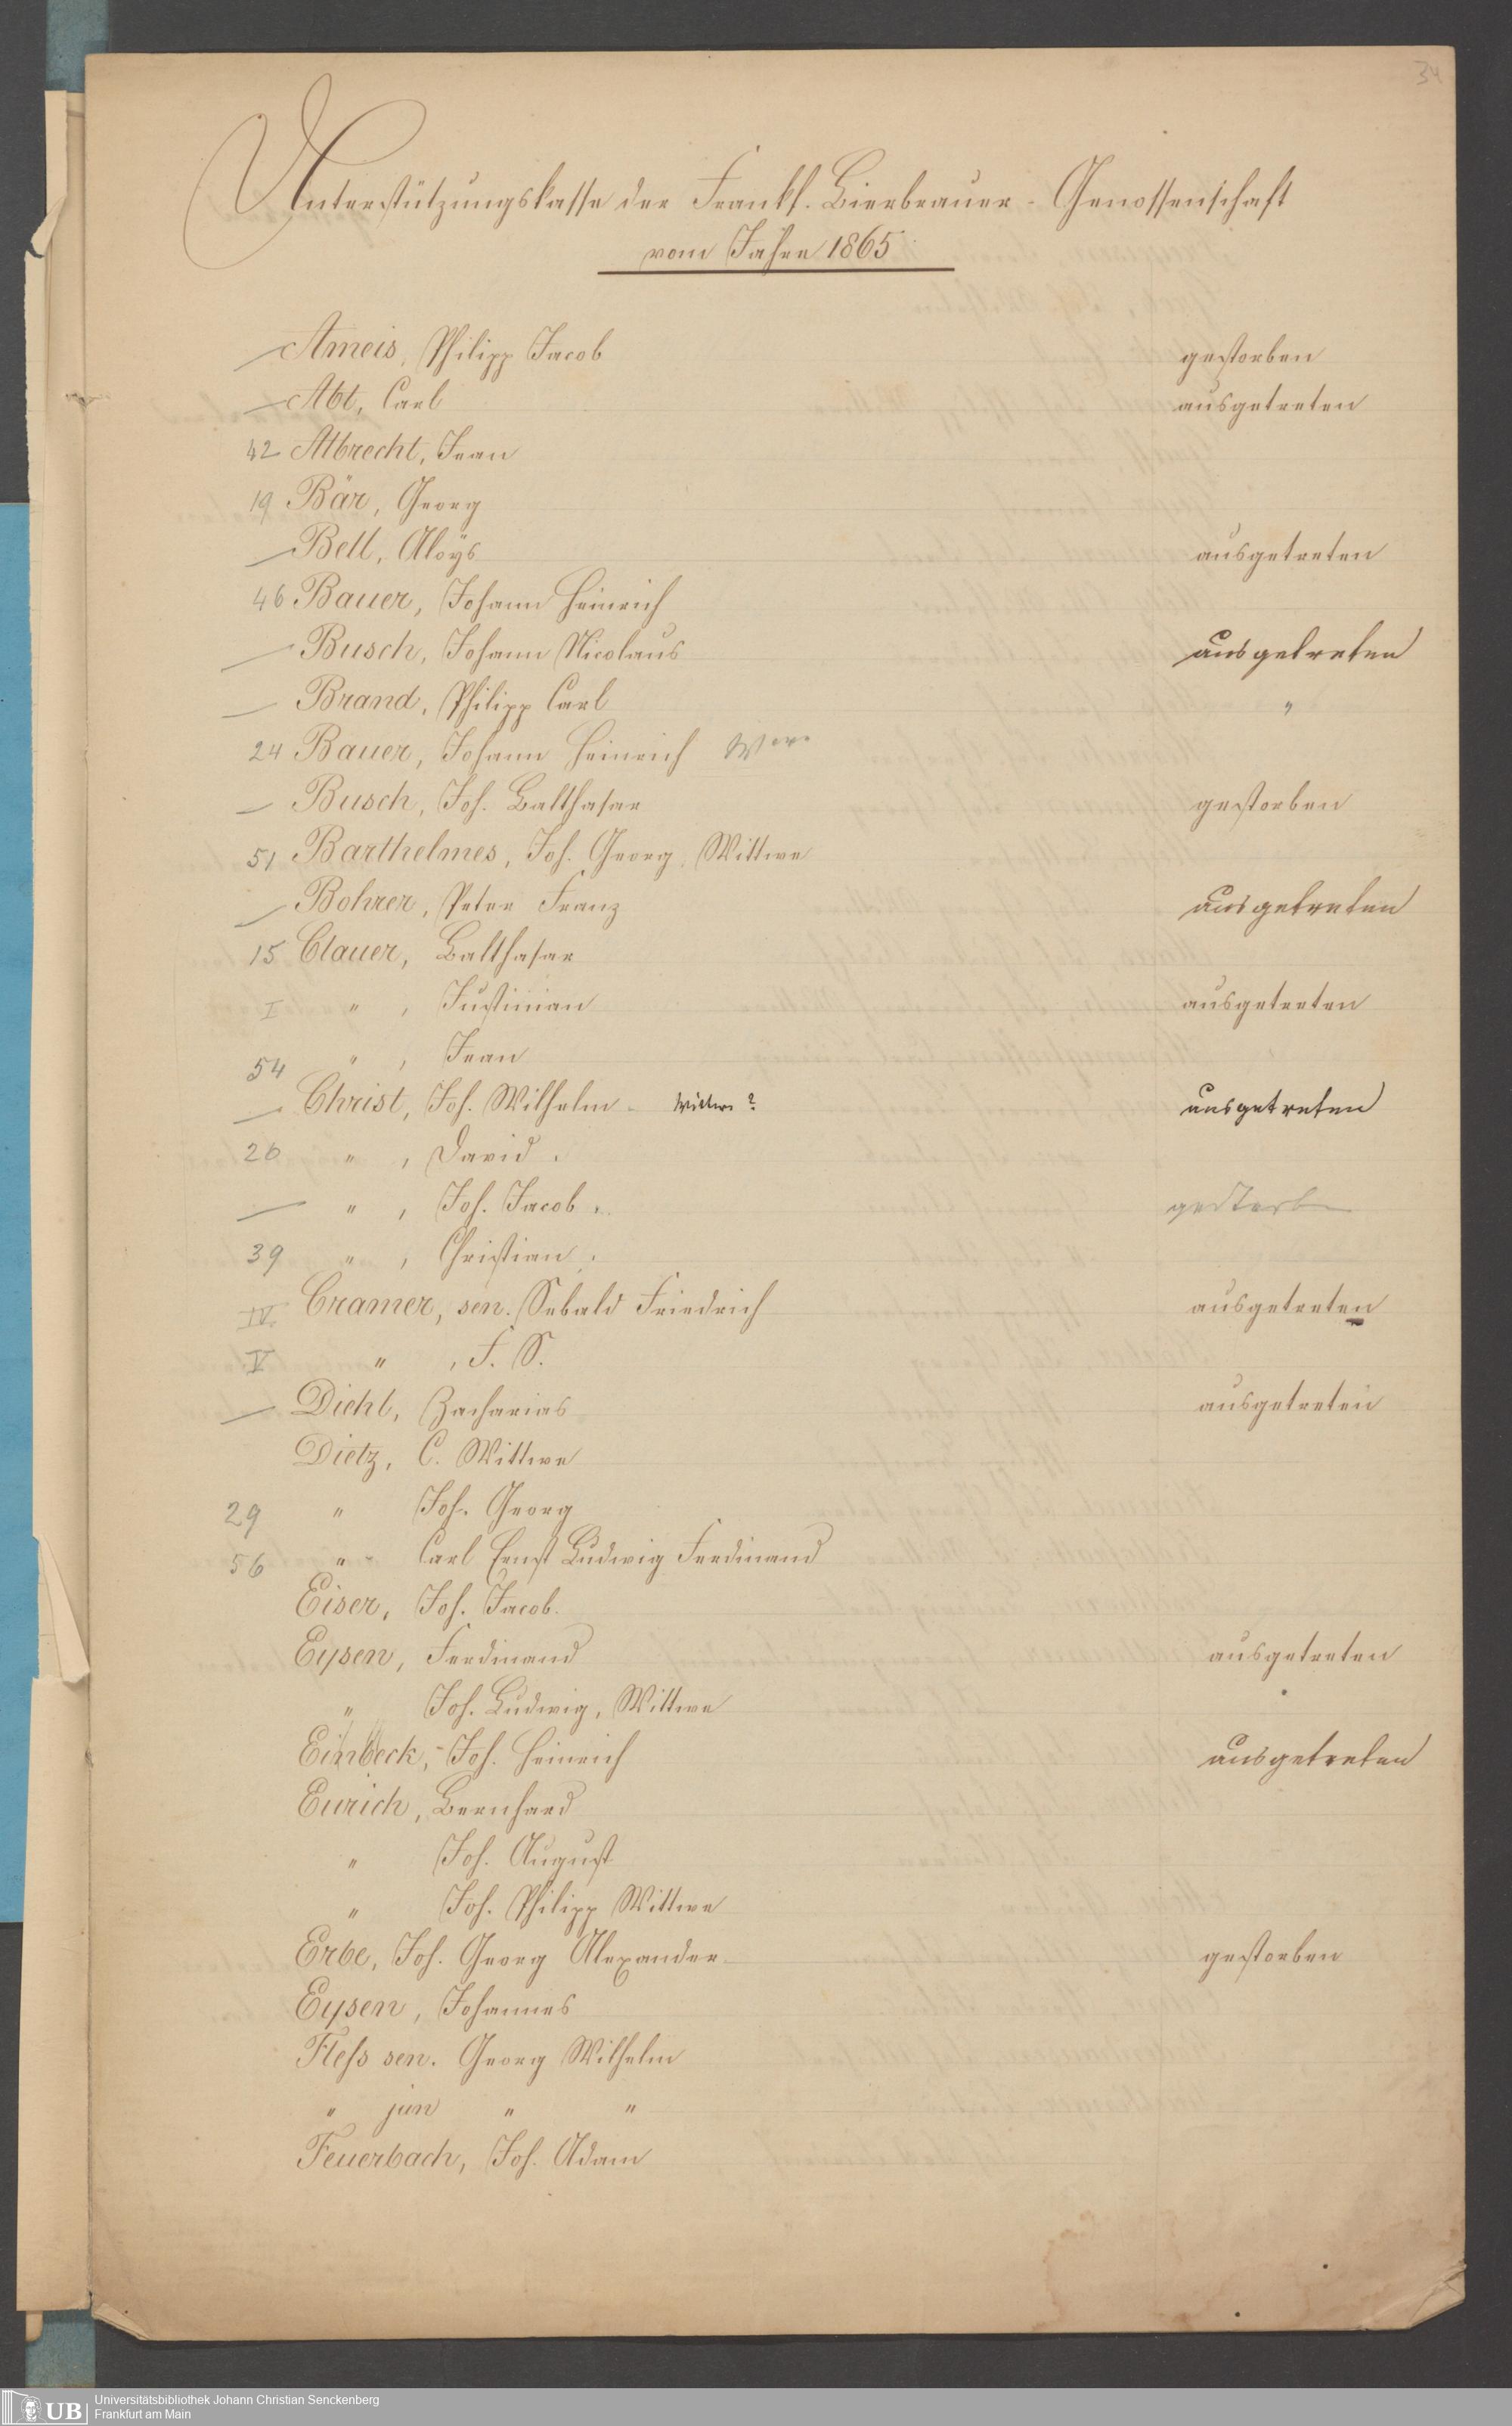 34
Unterstützungskasse der Frankf. Bierbrauer-Genossenschaft
vom Jahre 1865
— Ameis, Philipp Jacob gestorben
— Abt, Carl ausgetreten
42 Albrecht, Jean
19 Bär, Georg
— Bell, Aloÿs ausgetreten
46 Bauer, Johann Heinrich
— Busch, Johann Nicolaus ausgetreten
— Brand, Philipp Carl "
24 Bauer, Johann Heinrich Wwe
— Busch, Joh. Balthasar gestorben
51 Barthelmes, Joh. Georg, Wittwe
— Bohrer, Peter Franz ausgetreten
15 Clauer, Balthasar
I " , Justinian ausgetreten
54 " , Jean
— Christ, Joh. Wilhelm Wittwe? ausgetreten
20 " , David
— " , Joh. Jacob gestorben
39 " , Christian
IV. Cramer, sen. Sebald Friedrich ausgetreten
V " , F. S.
— Diehl, Zacharias ausgetreten
Dietz, C. Wittwe
29 " Joh. Georg
56 " Carl Ernst Ludwig Ferdinand
Eiser, Joh. Jacob.
Eysen, Ferdinand ausgetreten
" Joh. Ludwig, Wittwe
Einbeck, Joh. Heinrich ausgetreten
Eurich, Bernhard
" Joh. August
" Joh. Philipp Wittwe
Erbe, Joh. Georg Alexander gestorben
Eysen, Johannes
Fleß sen. Georg Wilhelm
" jun " "
Feuerbach, Joh. Adam
UB
Universitätsbibliothek Johann Christian Senckenberg
Frankfurt am Main